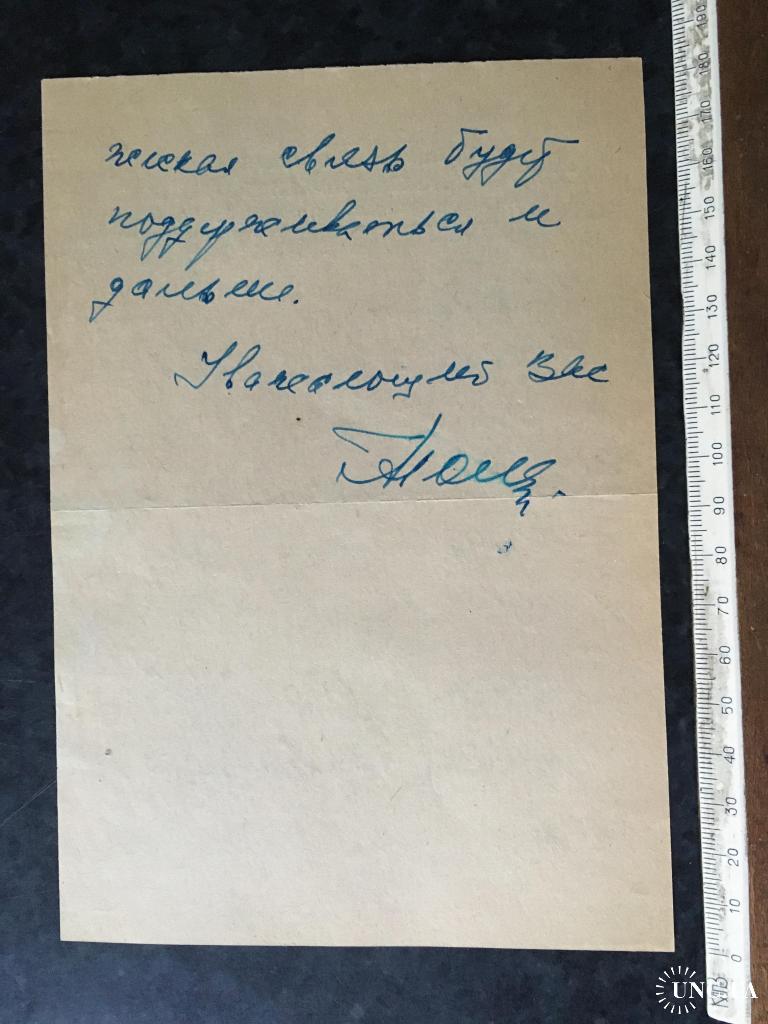 ческая связь будет
поддерживаться и
дальше.
Уважающий Вас
190
180
170
160
150
140
130
120
110
100
90
80
70
60
50
40
30
20
10
0